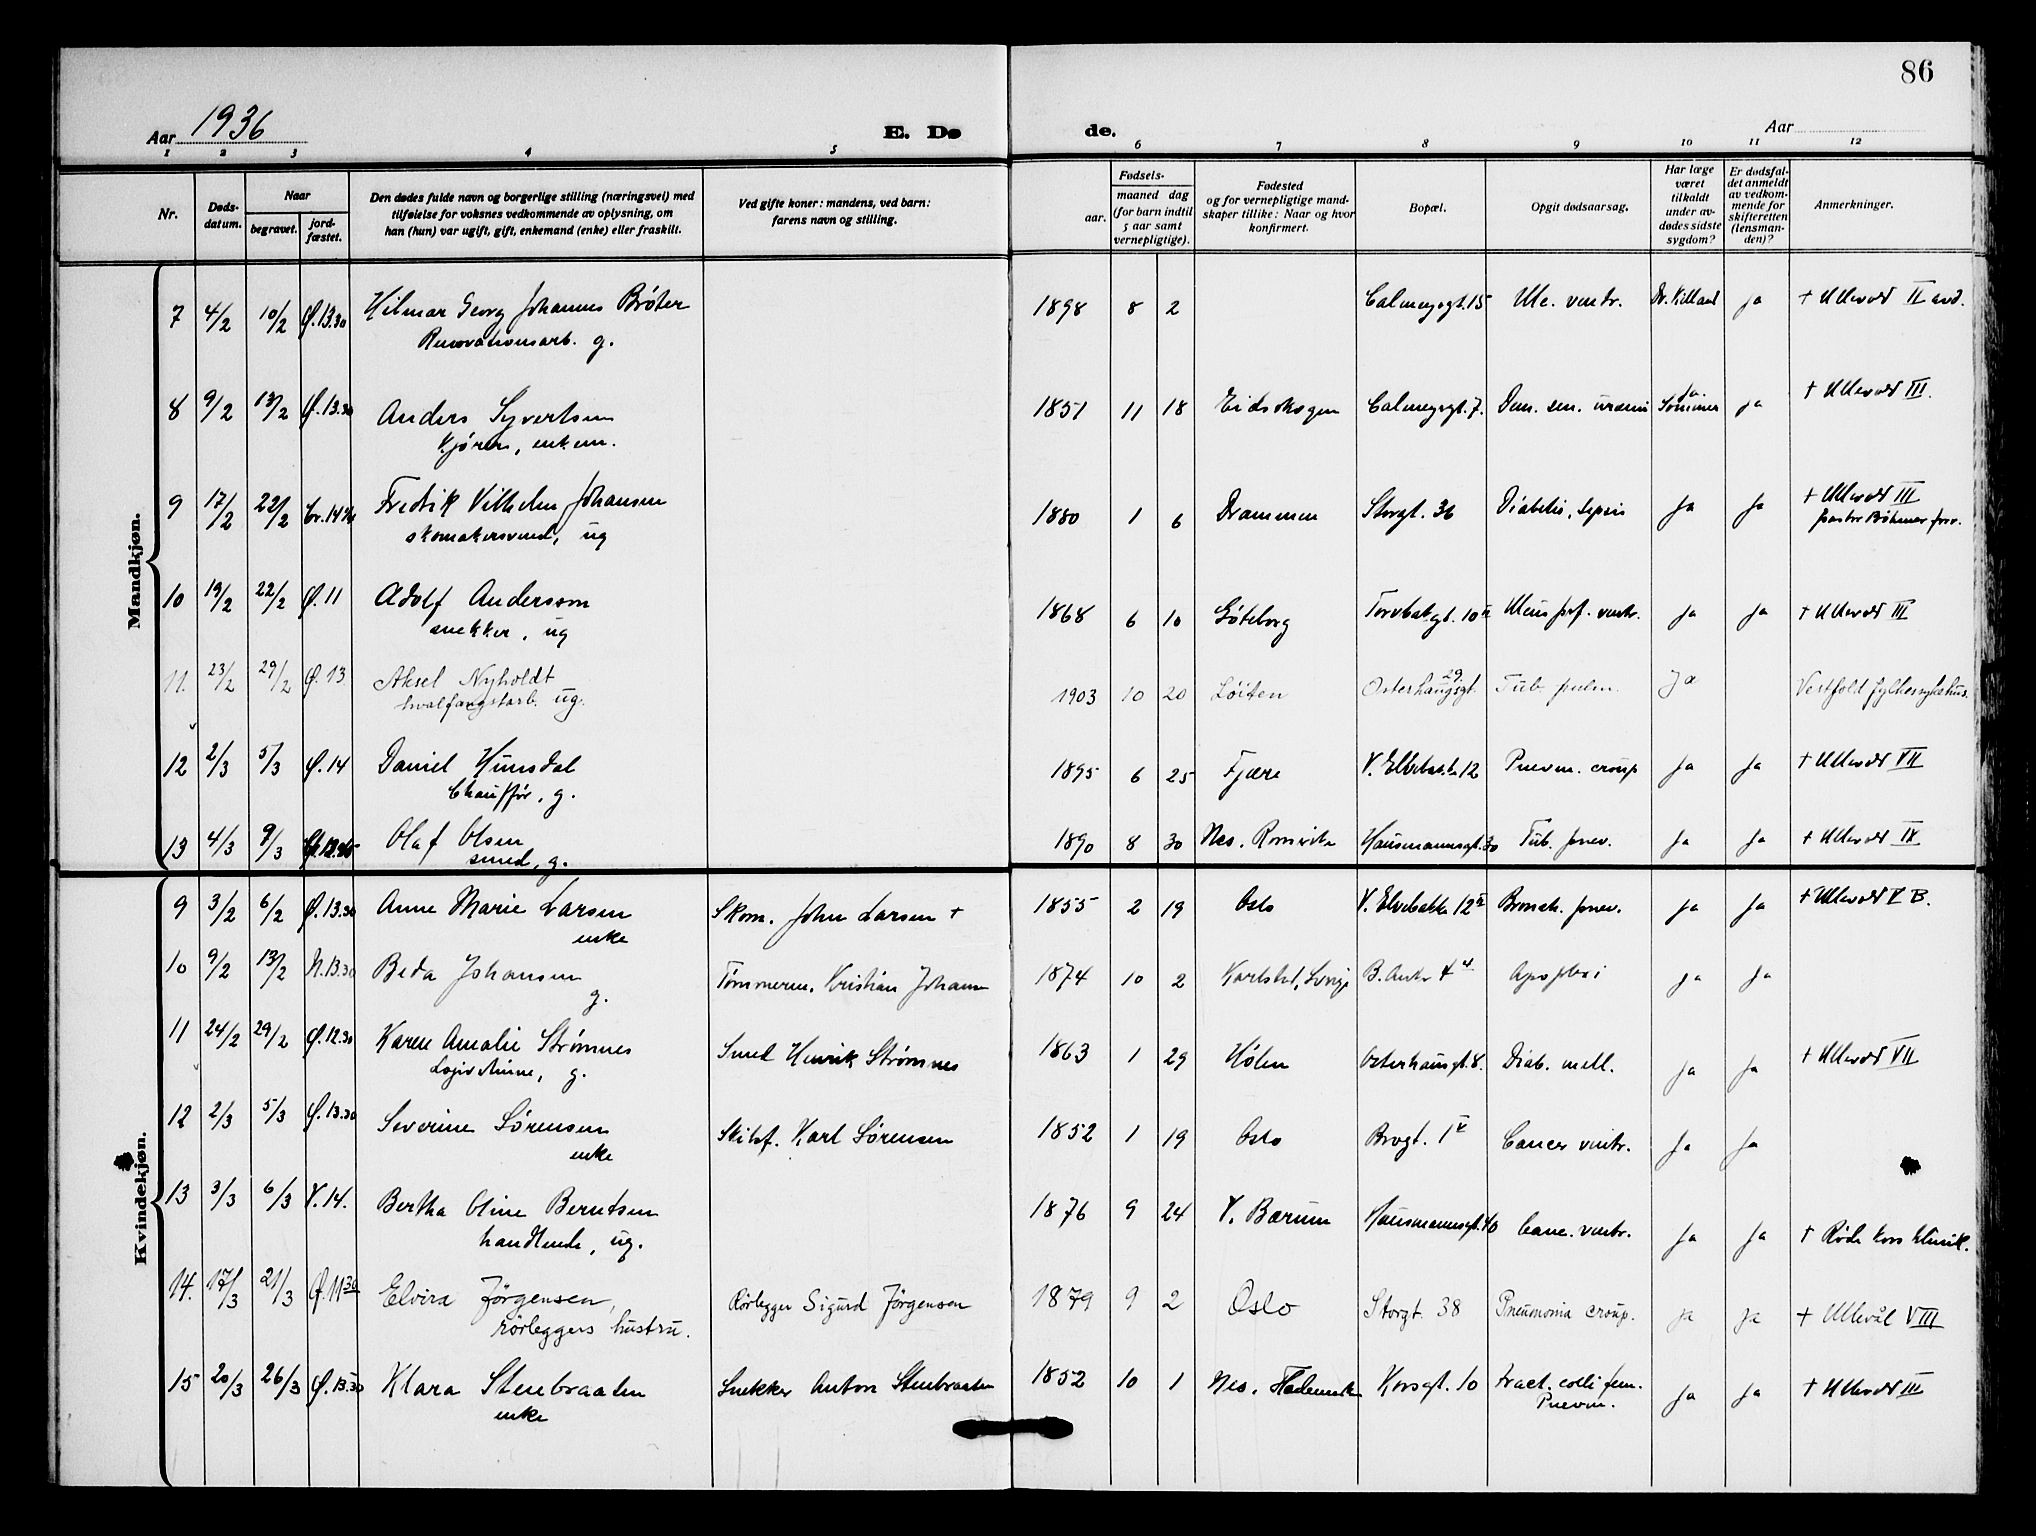 86
Aar 1936
E. Dø
de.
Aar
1 2 3 4 5 6 7 8 9 10 11 12
Nr.
Døds-
datum.
Naar
begravet.
jord-
fæstet.
Den dødes fulde navn og borgerlige stilling (næringsvei) med
tilføielse for voksnes vedkommende av oplysning, om
han (hun) var ugift, gift, enkemand (enke) eller fraskilt.
Ved gifte koner: mandens, ved barn:
farens navn og stilling.
Fødsels-
aar.
maaned dag
(for barn indtil
5 aar samt
vernepligtige).
Fødested
og for vernepligtige mand-
skaper tillike: Naar og hvor
konfirmert.
Bopæl.
Opgit dødsaarsag.
Har læge
været
tilkaldt
under av-
dødes sidste
sygdom?
Er dødsfal-
det anmeldt
av vedkom-
mende for
skifteretten
(lensman-
den)?
Anmerkninger.
Mandkjøn.
7 4/2 10/2 Ø.13.30 Hilmar Georg Johannes Brøter 1898 8 2 Calmeyersgt. 15 Ulc. ventr. Dr. Killand ja + Ullevold II avd.
Renovationsarb. g.
8 9/2 13/2 Ø.13.30 Anders Syvertsen 1851 11 18 Eidskogen Calmeyergt. 7. Dem. sen. uræmi ja. Sommer ja + Ullevold III.
Kjører, enkem.
9 17/2 22/2 Cr. 14 Fredrik Vilhelm Johansen 1880 1 6 Drammen Storgt. 36 Diabetes, sepsis ja ja + Ullevold III
skomakersvend, ug pastor Bøhmer forr.
10 19/2 22/2 Ø.11 Adolf Andersson 1868 6 10 Gøteborg Torvbakgt. 10 Ulcus perf. ventr. ja ja + Ullevold III
snekker, ug
11. 23/2 29/2 Ø.13 Aksel Nyholdt 1903 10 20 Løiten Osterhausgt. 29 Tub. pulm. ja Vestfold fylkessykehus.
hvalfangstarb. ug.
12 2/3 5/3 Ø.14 Daniel Hunsdal 1895 6 25 Fjære V. Elvebak. 12 Pnevm. croup ja ja + Ullevold VII
Chauffør, g.
13 4/3 9/3 Olaf Olsen 1890 8 30 Nes. Romerike Hausmannsgt. 30 Tub. pnev. ja ja + Ullevold IX
smed, g.
Kvindekjøn.
9 3/2 6/2 Ø.13.30 Anne Marie Larsen Skom. John Larsen + 1855 2 19 Oslo V. Elvebakke 12 Bronch. pnev. ja ja + Ullevold V B.
enke
10 9/2 13/2 N.13.30 Beda Johansen Tømmerm. Kristian Johansen 1874 10 2 Karlstad, Sverige B. Anker 4 Apoplexi ja ja
g.
11 24/2 29/2 Ø.12.30 Karen Amalie Strømnes Smed Henrik Strømnes 1863 1 29 Hølen Osterhausgt. 8. Diab. mell. ja ja + Ullevold VII
Logivertinne, g.
12 2/3 5/3 Ø.13.30 Severine Sørensen Skibsf. Karl Sørensen 1852 1 19 Oslo Brogt. 1 Cancer ventr. ja ja
enke
13 3/3 6/3 V.14. Bertha Oline Berntsen 1876 9 24 V. Bærum Hausmannsgt. 40 Canc. ventr. ja ja + Røde Kors klinik.
handlende, ug.
14. 17/3 21/3 Ø.11 30 Elvira Jørgensen, Rørlegger Sigurd Jørgensen 1879 9 2 Oslo Storgt. 38 Pneumonia croup. ja ja + Ullevål VIII
rørleggers hustru.
15 20/3 26/3 Ø.13.30 Klara Stenbraaten Snekker Anton Stenbraaten 1852 10 1 Nes. Hedemark Korsgt. 10 Fract. colli fem. ja ja + Ullevold III
enke Pnevm.